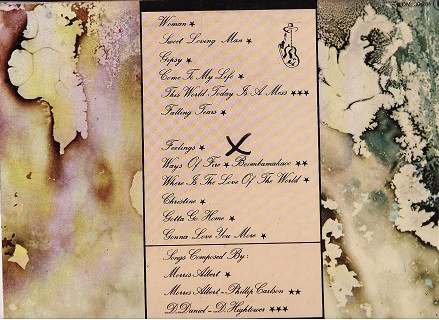 Woman ★
Sweet Loving Man ★
Gipsy ★
Come To My Life ★
This World Today Is A Mess ★★★
Falling Tears ★
Feelings ★
Ways Of Fire ★ Boombamakaoo ★★
Where Is The Love Of The World ★
Christine ★
Gotta Go Home ★
Gonna Love You More ★
Songs Composed By:
Morris Albert ★
Morris Albert - Phillip Carlson ★★
D. Daniel - D. Hightower ★★★